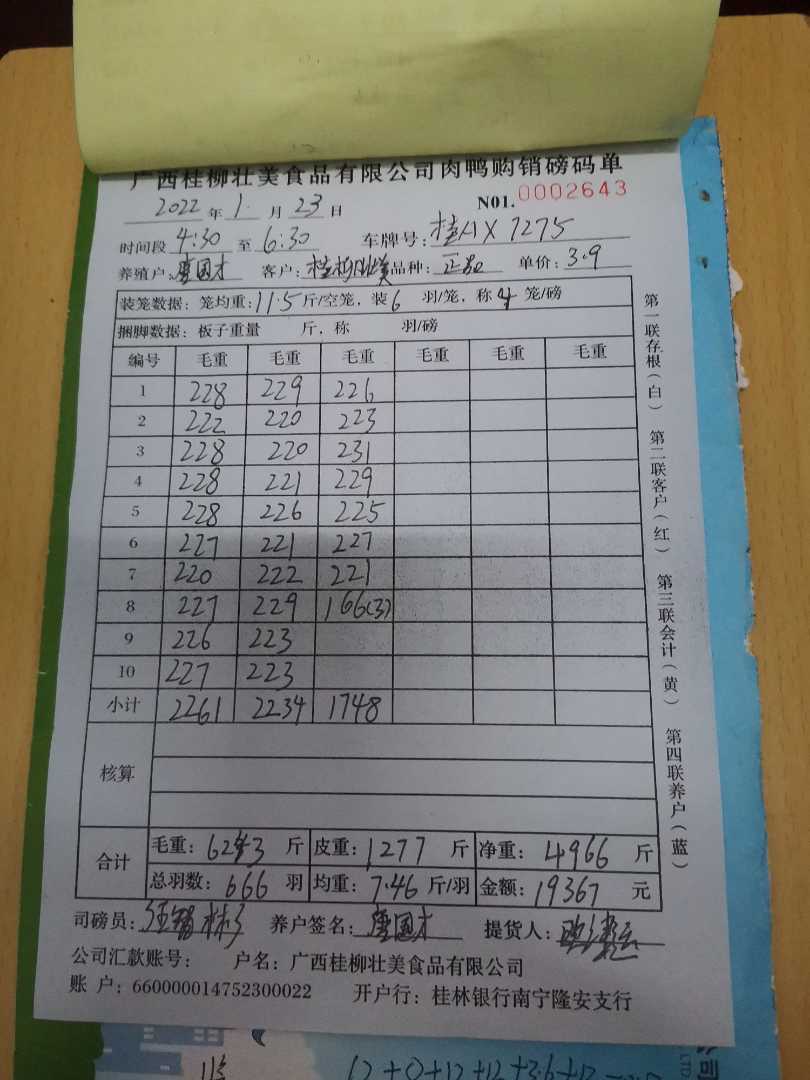 广西桂柳壮美食品有限公司肉鸭购销磅码单
2022 年 1 月 23 日 N01. 0002643
时间段 4:30 至 6:30 车牌号: 桂AX7275
养殖户: 唐国才 客户: 桂柳壮美 品种: 正品 单价: 3.9
装笼数据: 笼均重: 11.5 斤/空笼, 装 6 羽/笼, 称 4 笼/磅
捆脚数据: 板子重量 斤, 称 羽/磅
编号 毛重 毛重 毛重 毛重 毛重 毛重
1 228 229 226
2 222 220 223
3 228 220 231
4 228 221 229
5 228 226 225
6 227 221 227
7 220 222 221
8 227 229 166(3)
9 226 223
10 227 223
小计 2261 2234 1748
核算
合计 毛重: 6243 斤 皮重: 1277 斤 净重: 4966 斤
总羽数: 666 羽 均重: 7.46 斤/羽 金额: 19367 元
司磅员: 养户签名: 唐国才 提货人:
公司汇款账号: 户名: 广西桂柳壮美食品有限公司
账 户: 660000014752300022 开户行: 桂林银行南宁隆安支行
第一联存根(白) 第二联客户(红) 第三联会计(黄) 第四联养户(蓝)
12+0+12+12+3.6+12